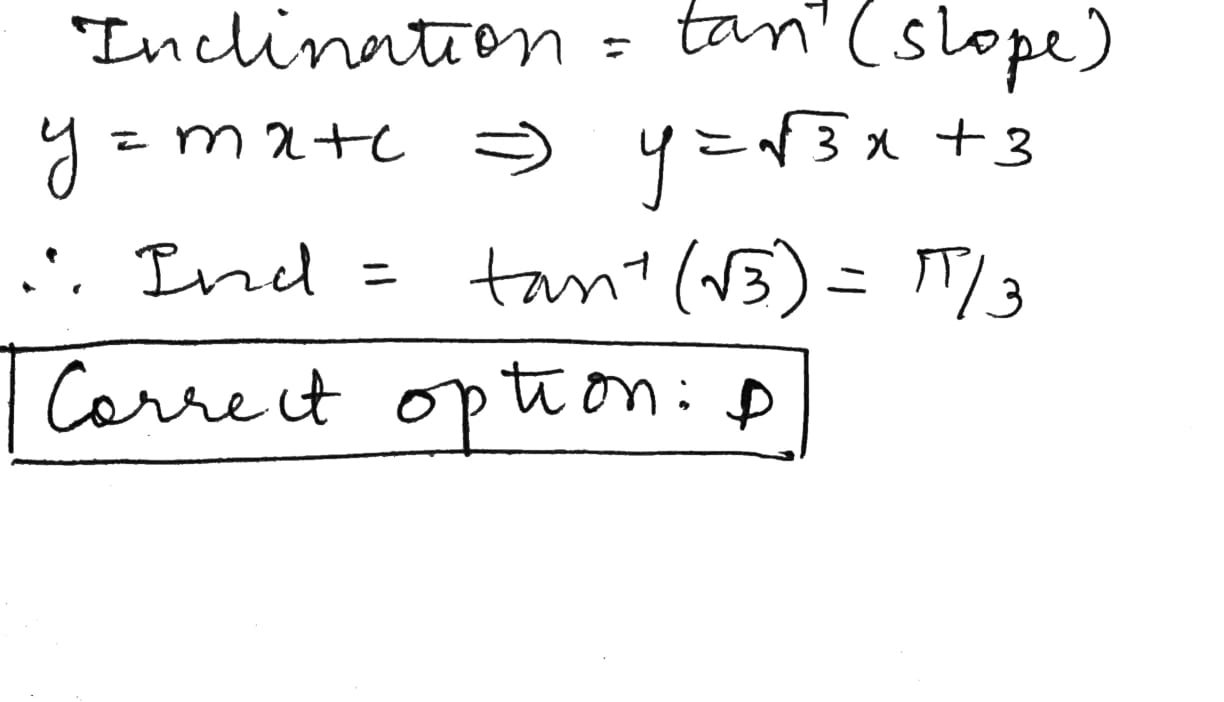 Inclination = tan⁻¹ (slope)
y = mx+c ⇒ y = √3 x + 3
∴ Incl = tan⁻¹ (√3) = π/3
Correct option: D